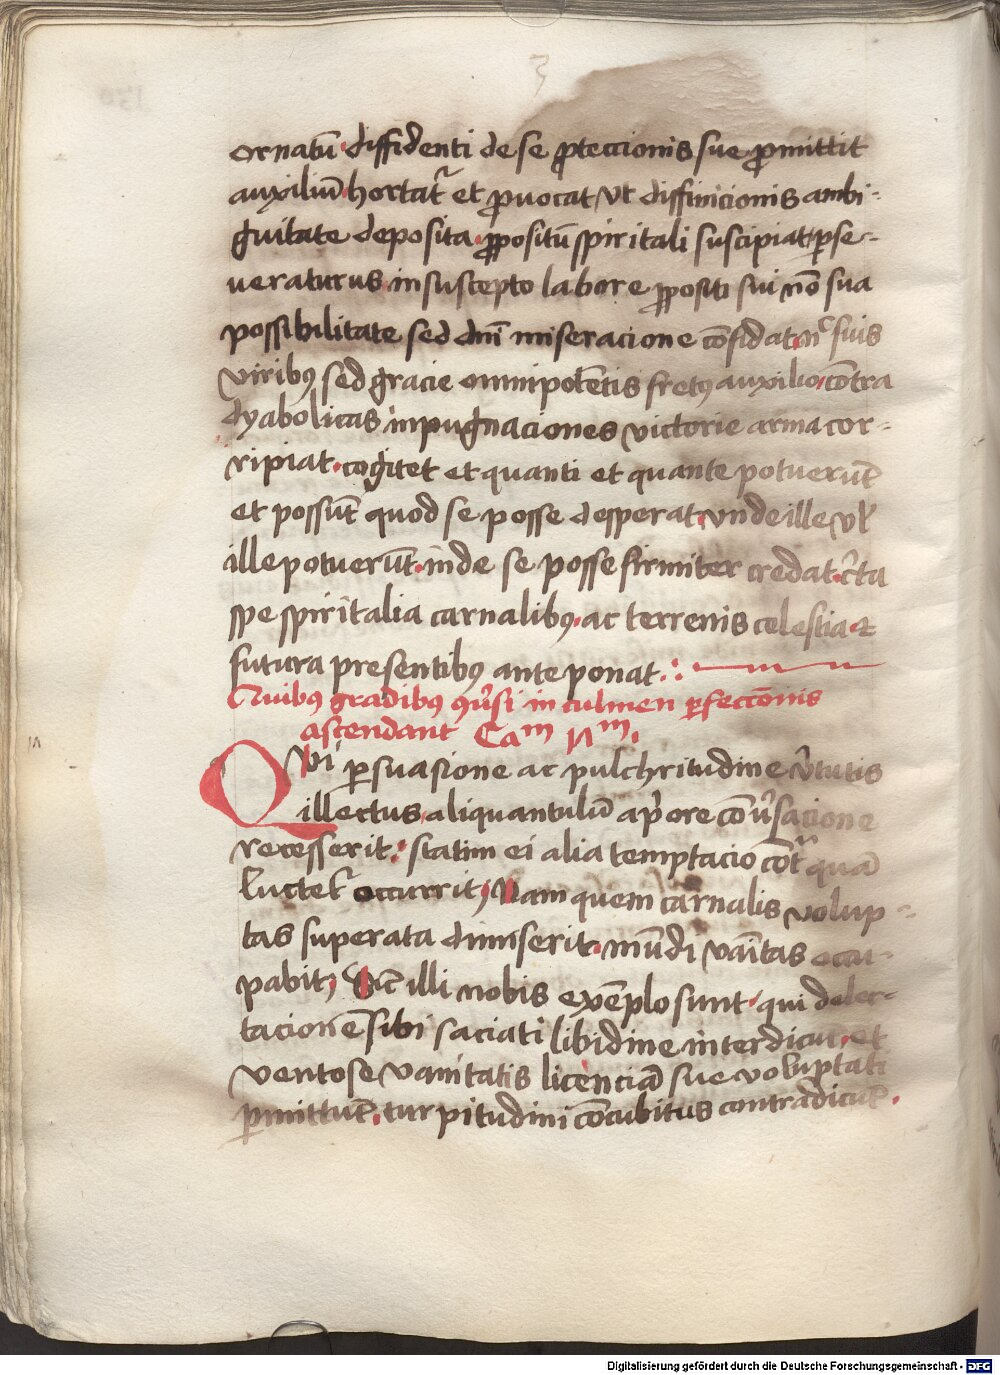 3
ornatū diffidenti de se ꝓteccionis sue ꝓmittit
auxiliū hortat᷑ et ꝓuocat / Vt diffinicionis ambi-
guitate deposita ꝓpositū spiritali suscipiat / ꝑse-
ueraturus in suscepto labore ꝓpositi sui nō sua
possibilitate sed dn̄i miseracione cōfidat nc̄ suis
Viribꝰ sed gracie omnipotētis fretꝰ auxilio cōtra
dyabolicas inpugnaciones victorie arma cor-
ripiat. cogitet et quanti et quante potuerūt
et possūt quod se posse desperat vnde ille Vl̄
ille potuerūt. inde se posse firmiter credat. cͤta
spe spiritalia carnalibꝰ. ac terrenis celestia ⁊
futura presentibꝰ ante ponat.
Quibus gradibꝰ ꝯũsi in culmen ꝑfecciōnis
ascendant Caᵐ IIᵐ.
QVi ꝑsuasione ac pulchritudine v̾tutis
illectus aliquantulū a p̾ore cōu̾sacione
recesserit. statim ei alia temptacio cōt̾ quā
luctet᷑ occurrit, Nam quem carnalis volup-
tas superata dimiserit. mūdi vanītas occu-
pabit, Sīc illi nobis exēplo sunt qui delec-
tacionē sibi saciati libidine interdicūt. et
ventose vanitatis licēnciā sue voluptati
ꝑmittūt. turpitudini cōcubitus contradicūt.
Digitalisierung gefördert durch die Deutsche Forschungsgemeinschaft - DFG